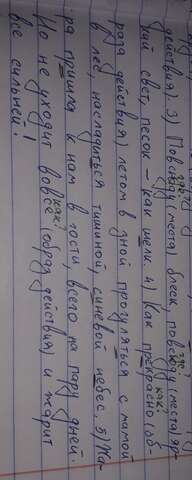 действия). 3) Повсюду (места) где? блеск, повсюду (места) где? яр-
кий свет, песок - как шелк. 4) Как прекрасно (об-
раза действия) как? летом в зной прогуляться с мамой
в лес, насладиться тишиной, синевой небес. 5) Жа-
ра пришла к нам в гости, всего на пару дней.
Но не уходит вовсе (образ действия) как? и жарит
все сильней!